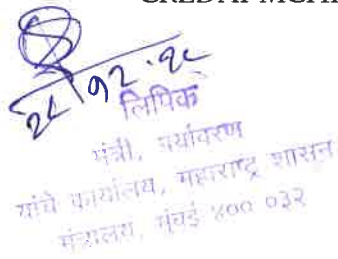 CREDAI MCHI
२८/१२.१८
लिपिक
मंत्री, पर्यावरण
यांचे कार्यालय, महाराष्ट्र शासन
मंत्रालय, मुंबई ४०० ०३२